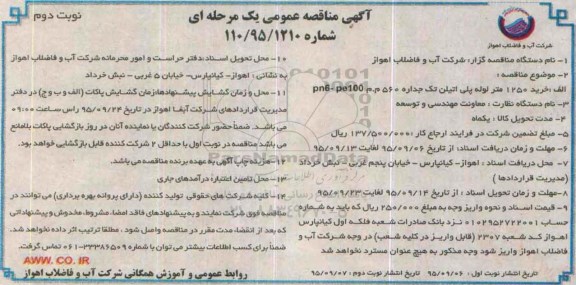 نوبت دوم
آگهی مناقصه عمومی یک مرحله ای
شماره ۱۱۰/۹۵/۱۲۱۰
شرکت آب و فاضلاب اهواز
۱- نام دستگاه مناقصه گزار: شرکت آب و فاضلاب اهواز
۲- موضوع مناقصه:
الف: خرید ۱۲۵۰ متر لوله پلی اتیلن تک جداره ۵۶۰ م.م pn6- pe100
۳- نام دستگاه نظارت: معاونت مهندسی و توسعه
۴- مدت تحویل کالا: یکماه
۵- مبلغ تضمین شرکت در فرایند ارجاع کار: ۱۳۷/۵۰۰/۰۰۰ ریال
۶- مهلت و زمان دریافت اسناد: از تاریخ ۹۵/۰۹/۰۶ لغایت ۹۵/۰۹/۱۳
۷- محل دریافت اسناد: اهواز- کیانپارس - خیابان پنجم غربی- نبش خرداد
(مدیریت قراردادها)
۸-مهلت و زمان تحویل اسناد: از تاریخ ۹۵/۰۹/۱۴ لغایت ۹۵/۰۹/۲۳
۹- قیمت اسناد و نحوه واریز وجه به مبلغ ۲۵۰/۰۰۰ ریال که باید به شماره
حساب ۰۱۰۲۹۵۲۷۲۲۰۰۱ نزد بانک صادرات شعبه فلکه اول کیانپارس
اهواز کد شعبه ۲۳۰۷ (قابل واریز در کلیه شعب) در وجه شرکت آب و
فاضلاب اهواز واریز شود وجه مذکور به هیچ عنوان مسترد نخواهد شد
۱۰- محل تحویل اسناد:دفتر حراست و امور محرمانه شرکت آب و فاضلاب اهواز
به نشانی: اهواز- کیانپارس- خیابان ۵ غربی - نبش خرداد
۱۱- محل و زمان گشایش پیشنهادها:زمان گشایش پاکات (الف و ب و ج) در دفتر
مدیریت قراردادهای شرکت آبفا اهواز در تاریخ ۹۵/۰۹/۲۴ راس ساعت ۰۹:۰۰
می باشد. ضمناً حضور شرکت کنندگان یا نماینده آنان در روز بازگشایی پاکات بلامانع
می باشد مناقصه در نوبت اول با حداقل ۲ شرکت کننده قابل بازگشایی خواهد بود.
۱۲- هزینه چاپ آگهی به عهده برنده مناقصه می باشد.
۱۳- محل تامین اعتبار: درآمدهای جاری
۱۴- کلیه شرکت های حقوقی تولید کننده (دارای پروانه بهره برداری) می توانند در
مناقصه فوق شرکت نمایند و به پیشنهادهای فاقد امضا، مشروط، مخدوش و پیشنهاداتی
که بعد از انقضاء مدت مقرر در مناقصه واصل شود، مطلقا ترتیب اثر داده نخواهد شد.
ضمناً برای کسب اطلاعات بیشتر می توان با شماره ۳۳۳۸۶۵۰۹-۰۶۱ تماس گرفت.
AWW.CO.IR
روابط عمومی و آموزش همگانی شرکت آب و فاضلاب اهواز
تاریخ انتشار نوبت اول: ۹۵/۰۹/۰۶ تاریخ انتشار نوبت دوم: ۹۵/۰۹/۰۷